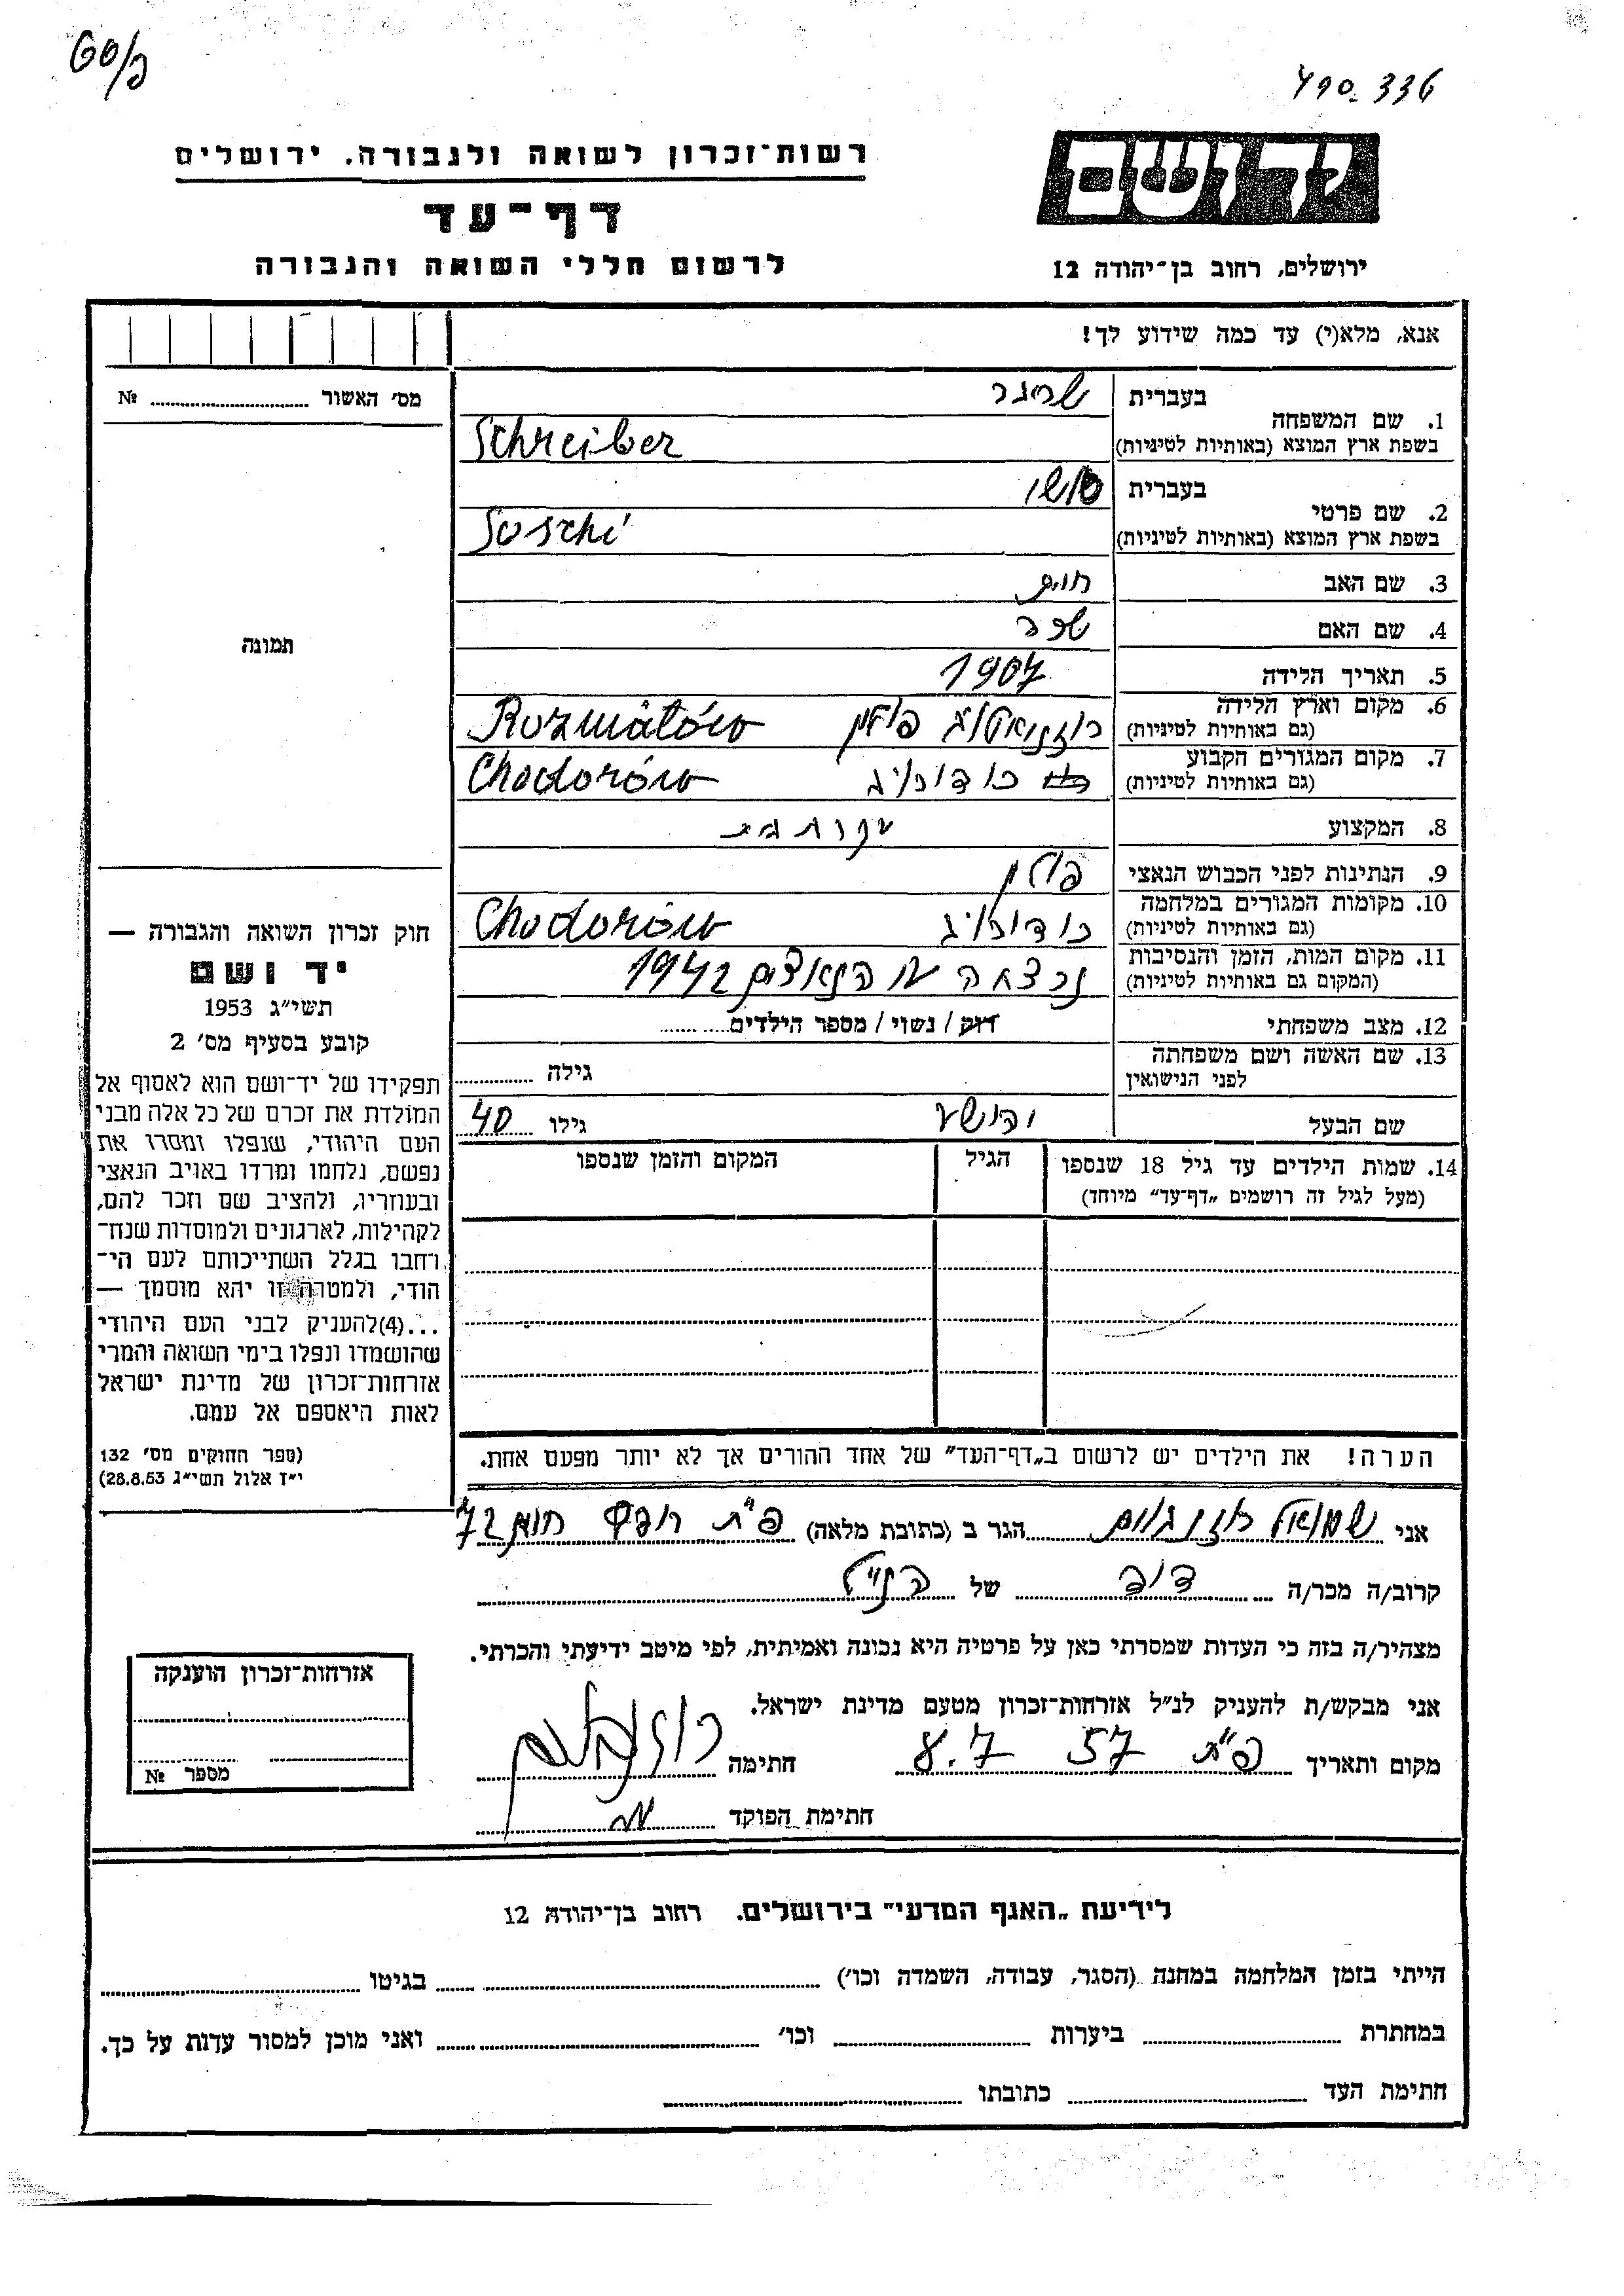 490336
רשות־זכרון לשואה ולגבורה. ירושלים
דף־עד
לרשום חללי השואה והגבורה
יד ושם
ירושלים, רחוב בן־יהודה 12
אנא, מלא(י) עד כמה שידוע לך!
מס׳ האשור № 
1. שם המשפחה
בעברית שרייבר
בשפת ארץ המוצא (באותיות לטיניות) Schreiber
2. שם פרטי
בעברית סושי
בשפת ארץ המוצא (באותיות לטיניות) Soschi
3. שם האב חיים
4. שם האם
5. תאריך הלידה 1907
6. מקום וארץ הלידה רוזניאטוב פולין
(גם באותיות לטיניות)
7. מקום המגורים הקבוע כודורוב Chodorów
(גם באותיות לטיניות)
8. המקצוע עקרת בית
9. הנתינות לפני הכבוש הנאצי פולין
10. מקומות המגורים במלחמה כודורוב Chodorów
(גם באותיות לטיניות)
11. מקום המות, הזמן והנסיבות נרצחה ע״י הנאצים 1942
(המקום גם באותיות לטיניות)
12. מצב משפחתי רוק / נשוי / מספר הילדים
13. שם האשה ושם משפחתה
לפני הנישואין
גילה
שם הבעל יהושע גילו 40
14. שמות הילדים עד גיל 18 שנספו הגיל המקום והזמן שנספו
(מעל לגיל זה רושמים „דף־עד״ מיוחד)
הערה! את הילדים יש לרשום ב„דף־העד״ של אחד ההורים אך לא יותר מפעם אחת.
תמונה
חוק זכרון השואה והגבורה —
יד ושם
תשי״ג 1953
קובע בסעיף מס׳ 2
תפקידו של יד־ושם הוא לאסוף אל
המולדת את זכרם של כל אלה מבני
העם היהודי, שנפלו ומסרו את
נפשם, נלחמו ומרדו באויב הנאצי
ובעוזריו, ולהציב שם וזכר להם,
לקהילות, לארגונים ולמוסדות שנח־
רחבו בגלל השתייכותם לעם הי־
הודי, ולמטרה זו יהא מוסמך —
...(4)להעניק לבני העם היהודי
שהושמדו ונפלו בימי השואה והמרי
אזרחות־זכרון של מדינת ישראל
לאות היאספם אל עמם.
(ספר החוקים מס׳ 132
י״ז אלול תשי״ג 28.8.53)
אני שמואל רוזנבוים הגר ב (כתובת מלאה) פ״ת 72
קרוב/ה מכר/ה דוד של הנ״ל
מצהיר/ה בזה כי העדות שמסרתי כאן על פרטיה היא נכונה ואמיתית, לפי מיטב ידיעתי והכרתי.
אני מבקש/ת להעניק לנ״ל אזרחות־זכרון מטעם מדינת ישראל.
מקום ותאריך פ״ת 8.7 57 חתימה רוזנבוים
חתימת הפוקד
אזרחות־זכרון הוענקה
מספר №
לידיעת „האגף המדעי״ בירושלים. רחוב בן־יהודה 12
הייתי בזמן המלחמה במחנה (הסגר, עבודה, השמדה וכו׳) בגיטו
במחתרת ביערות וכו׳ ואני מוכן למסור עדות על כך.
חתימת העד כתובתו